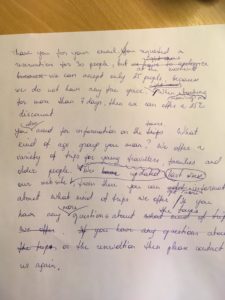 Thank you for your email. You requested a
reservation for 30 people, but
at the moment
because we can accept only 25 people, because
we do not have any free space. When booking
for more than 7 days, then we can offer a 25%
discount.
You asked for information on the trips. What
kind of age group you mean? We offer a
variety of trips for young travellers, families and
older people. We have updated
our website. From there you can
about what kind of trips we offer. If you
have any questions about what kind of trips
we offer. If you have any questions about
the trips or the reservation then please contact
us again.